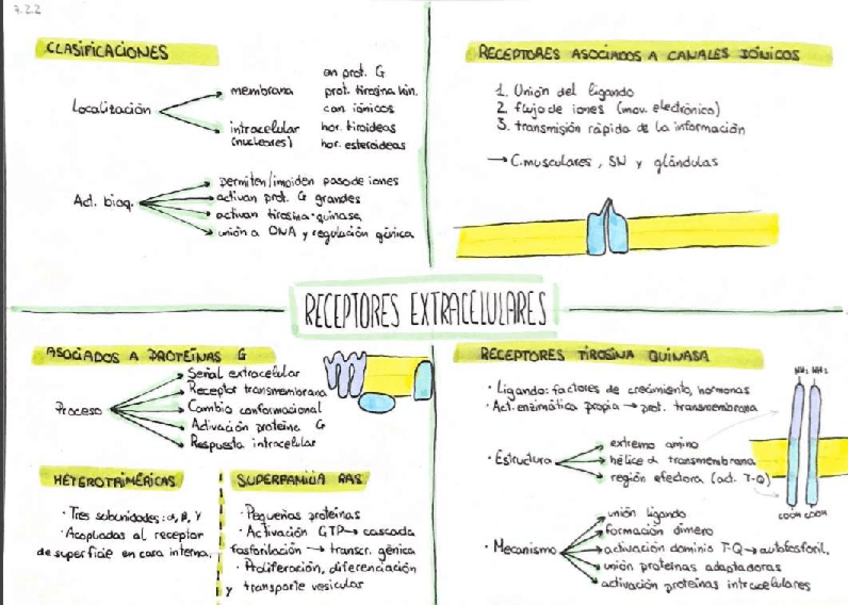 7.2.2
CLASIFICACIONES
Localización
membrana
on prot. G
prot. tirosina kin.
can iónicos
intracelular
(nucleares)
hor. tiroideas
hor. esteroideas
Act. bioq.
permiten/impiden paso de iones
activan prot. G grandes
activan tirosina-quinasa
unión a DNA y regulación génica
RECEPTORES ASOCIADOS A CANALES IÓNICOS
1. Unión del ligando
2. flujo de iones (mov. electrónico)
3. transmisión rápida de la información
→ C. musculares, SN y glándulas
RECEPTORES EXTRACELULARES
ASOCIADOS A PROTEÍNAS G
Proceso
Señal extracelular
Receptor transmembrana
Cambio conformacional
Activación proteína G
Respuesta intracelular
HETEROTRIMÉRICAS
· Tres subunidades: α, β, γ
· Acopladas al receptor
de superficie en cara interna.
SUPERFAMILIA RAS
· Pequeñas proteínas
· Activación GTP → cascada
fosforilación → transcr. génica
· Proliferación, diferenciación
y transporte vesicular
RECEPTORES TIROSINA QUINASA
· Ligando: factores de crecimiento, hormonas
· Act. enzimática propia → prot. transmembrana
· Estructura
extremo amino
hélice α transmembrana
región efectora (act. T-Q)
NH₂ NH₂
COOH COOH
· Mecanismo
unión ligando
formación dímero
activación dominio T-Q → autofosforil.
unión proteínas adaptadoras
activación proteínas intracelulares